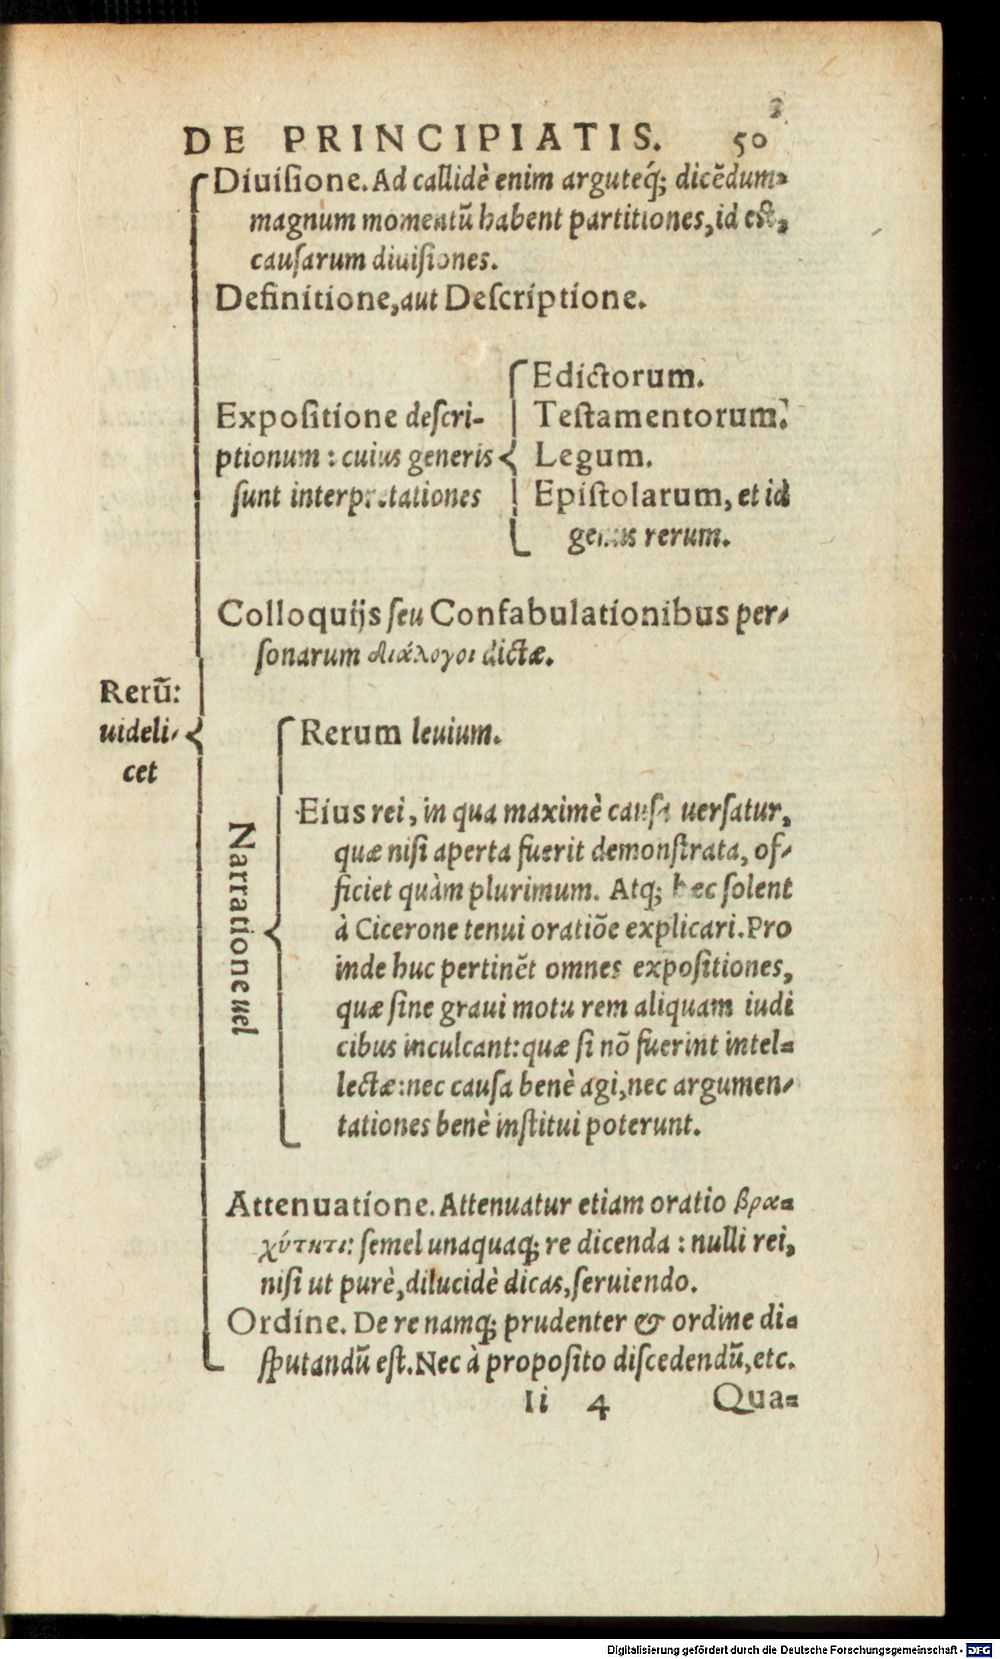 DE PRINCIPIATIS. 50
3
Diuisione. Ad callidè enim arguteq́; dicēdum-
magnum momentū habent partitiones, id est,
causarum diuisiones.
Definitione, aut Descriptione.
Edictorum.
Expositione descri-
Testamentorum.
ptionum: cuius generis
Legum.
sunt interpretationes
Epistolarum, et id
genus rerum.
Colloquijs seu Confabulationibus per-
sonarum διάλογοι dictæ.
Rerū:
uideli-
cet
Rerum leuium.
Narratione uel
Eius rei, in qua maximè causa uersatur,
quæ nisi aperta fuerit demonstrata, of-
ficiet quàm plurimum. Atq; hec solent
à Cicerone tenui oratiōe explicari. Pro
inde huc pertinēt omnes expositiones,
quæ sine graui motu rem aliquam iudi
cibus inculcant: quæ si nō fuerint intel-
lectæ: nec causa benè agi, nec argumen-
tationes benè institui poterunt.
Attenuatione. Attenuatur etiam oratio βρα-
χύτητι: semel unaquaq; re dicenda: nulli rei,
nisi ut purè, dilucidè dicas, seruiendo.
Ordine. De re namq; prudenter & ordine di-
sputandū est. Nec à proposito discedendū, etc.
Ii 4 Qua-
Digitalisierung gefördert durch die Deutsche Forschungsgemeinschaft - DFG